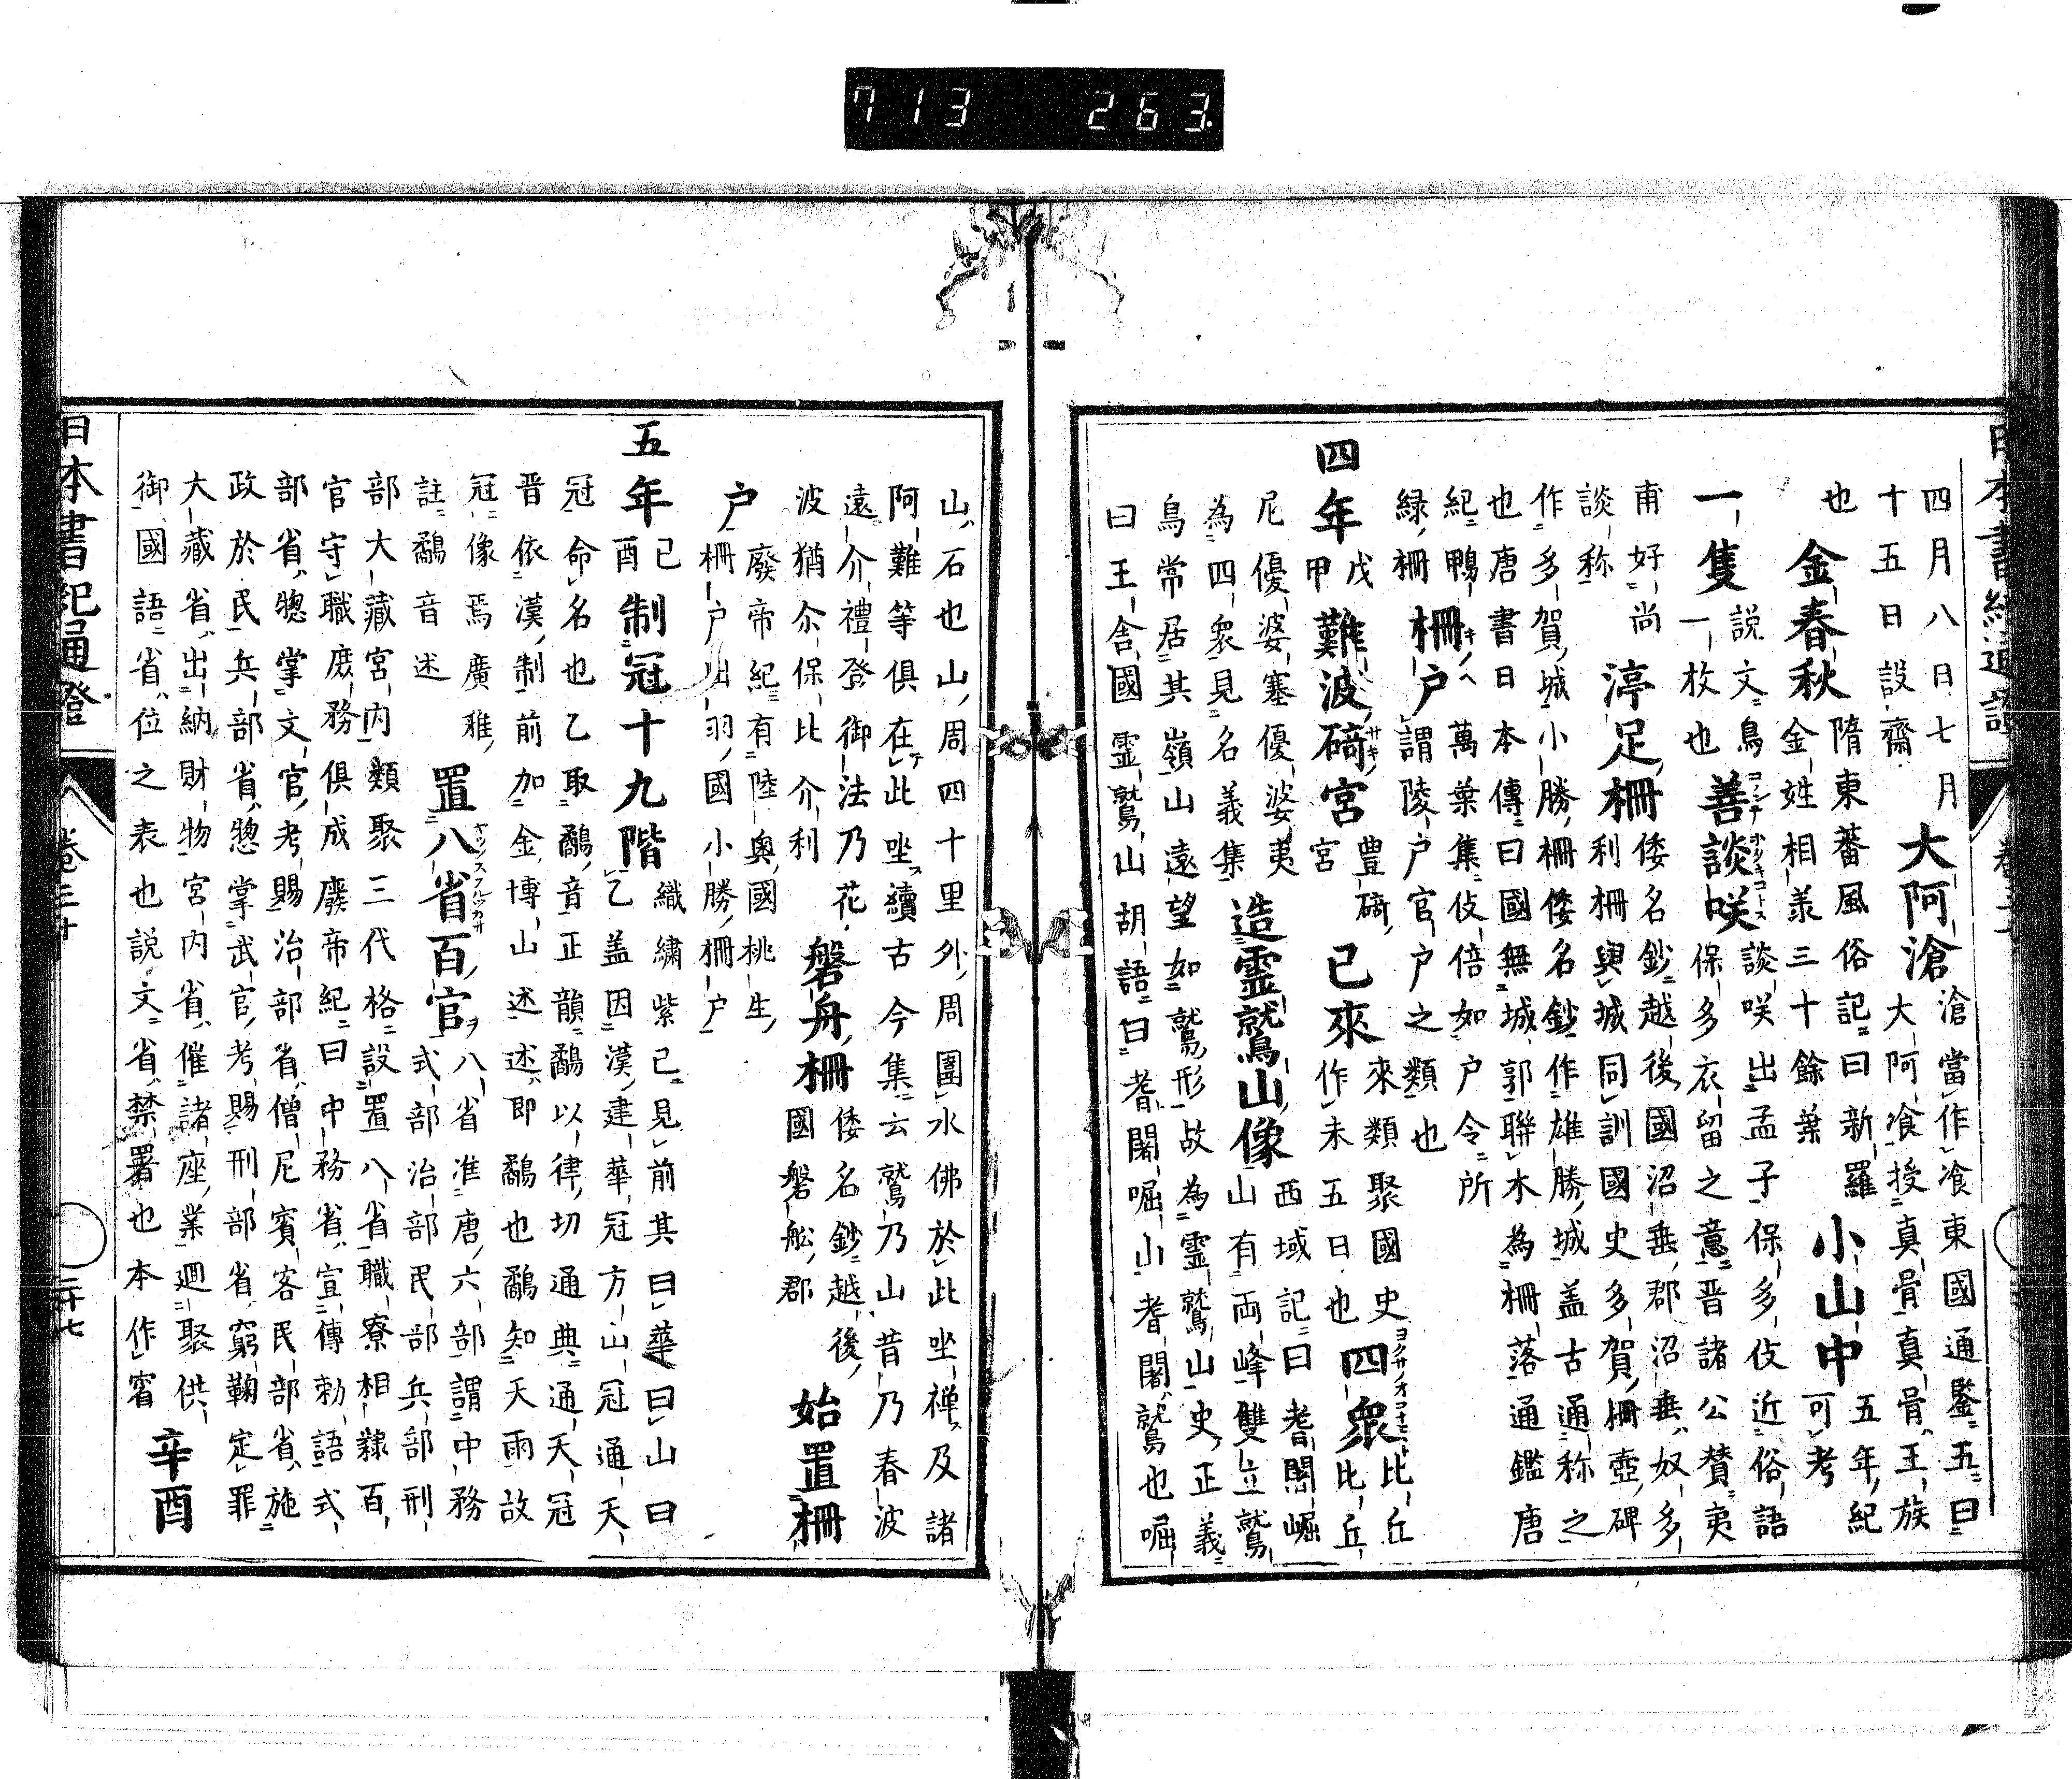 713 263.
四月八日七月
十五日設齋
大阿滄
滄當作飡東國通鑒五曰
大阿飡授真骨真骨王族
也
金春秋
隋東蕃風俗記曰新羅
金姓相羕三十餘葉
小山中
五年紀
可考
一隻
説文鳥
一枚也
善談咲
コノンテホタキコトス
談咲出孟子保多伎近俗語
保多衣留之意晋諸公賛夷
甫好尚
談称
渟足柵
倭名鈔越後國沼垂郡沼垂奴多
利柵與城同訓國史多賀柵壺碑
作多賀城小勝柵倭名鈔作雄勝城盖古通称之
也唐書日本傳曰國無城郭聯木為柵落通鑑唐
紀鴨
緑柵
柵户
キノヘ
萬葉集伎倍如户令所
謂陵户官户之類也
四年
戊
甲
難波碕宮
サキ
豊碕
宮
已來
來類聚國史
作未五日也
四衆
比丘
比丘
尼優婆塞優婆夷
為四衆見名義集
造霊鷲山像
西域記曰耆闍崛
山有両峰雙立鷲
鳥常居其嶺山遠望如鷲形故為霊鷲山史正義
曰王舎國霊鷲山胡語曰耆闍崛山耆闍鷲也崛
日本書紀通證
卷三十
山石也山周四十里外周圍水佛於此坐禅及諸
阿難等俱在此坐續古今集云鷲乃山昔乃春波
遠介禮登御法乃花
波猶尒保比介利
磐舟柵
倭名鈔越後
國磐舩郡
始置柵
户
廢帝紀有陸奥國桃生
柵户出羽國小勝柵户
五年
己
酉
制冠十九階
織繍紫已見前其曰華曰山曰
乙盖因漢建華冠方山冠通天
冠命名也乙取鷸音正韻鷸以律切通典通天冠
晋依漢制前加金博山述述即鷸也鷸知天雨故
冠像焉廣雅
註鷸音述
置八省百官
ヤツノスフルツカサヲ
八省准唐六部謂中務
式部治部民部兵部刑
部大藏宮内類聚三代格設置八省職寮相隸百
官守職庶務俱成廢帝紀曰中務省宣傳勅語式
部省惣掌文官考賜治部省僧尼賓客民部省施
政於民兵部省惣掌武官考賜刑部省窮鞠定罪
大藏省出納財物宮内省催諸座業廻聚供
御國語省位之表也説文省禁署也本作㝮
辛酉
日本書紀通證
卷三十
二十七